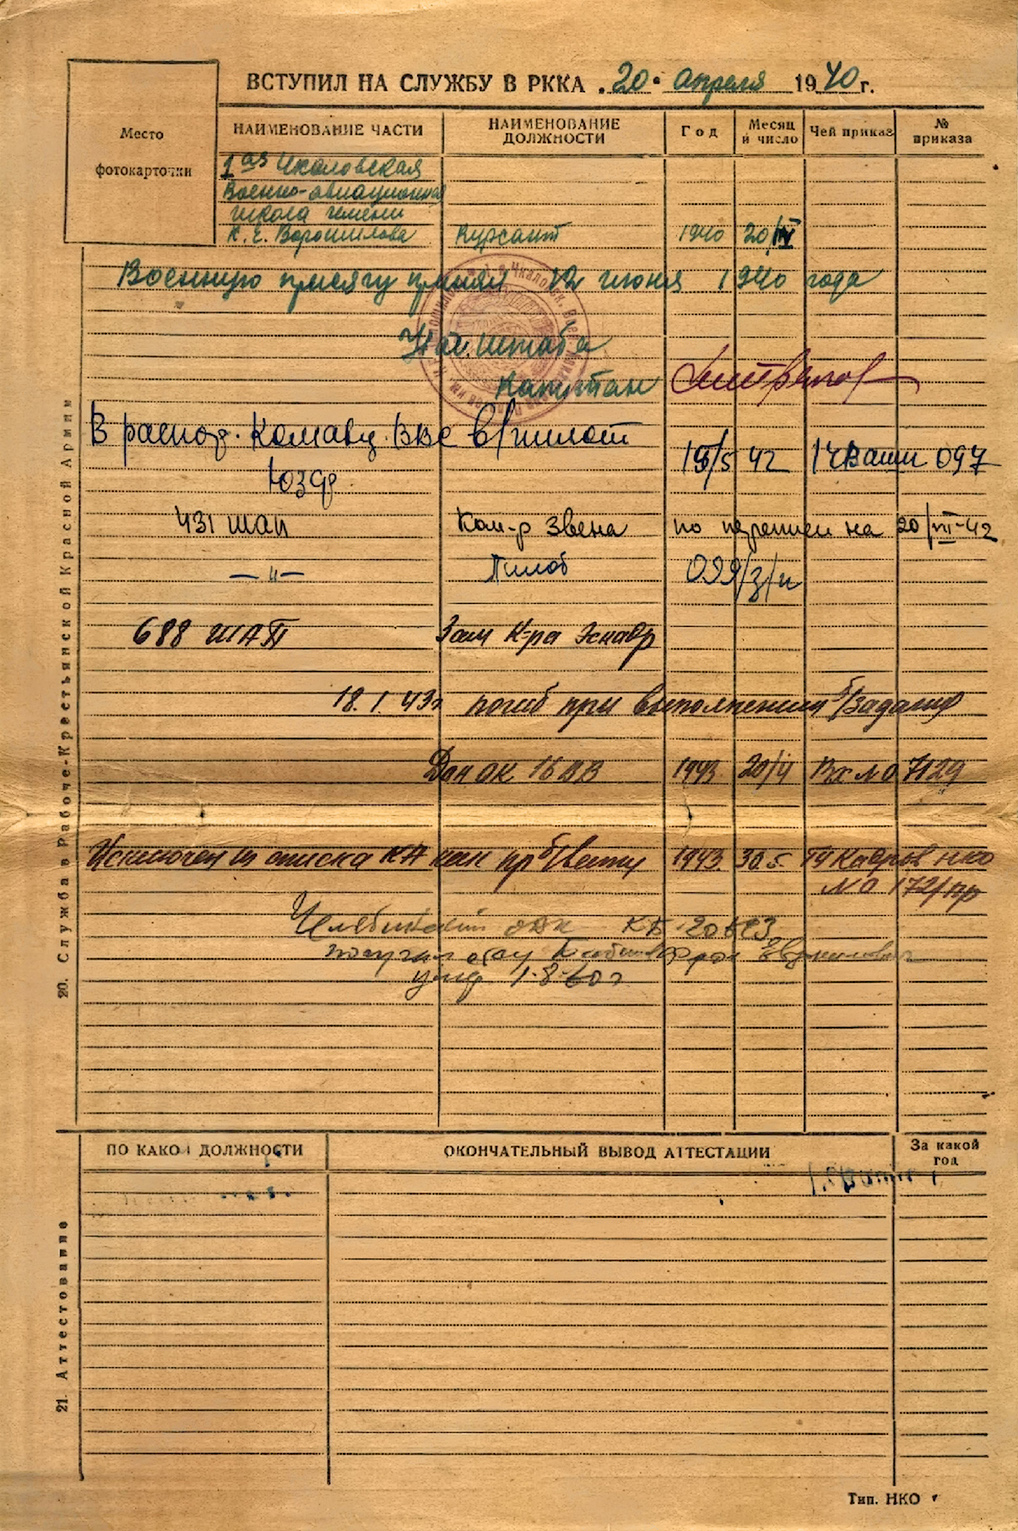 ВСТУПИЛ НА СЛУЖБУ В РККА 20 апреля 1940 г.
Место
фотокарточки
НАИМЕНОВАНИЕ ЧАСТИ
НАИМЕНОВАНИЕ
ДОЛЖНОСТИ
Год
Месяц
и число
Чей приказ
№
приказа
1ая Чкаловская
Военно-авиационная
школа имени
К. Е. Ворошилова Курсант 1940 20/IV
Военную присягу принял 12 июня 1940 года
Нач. штаба
Капитан
В распор. Команд. ВВС в/пилот 15/5 42 097
ЮЗФр
431 шап Ком-р Звена 20/VII-42
— " — Пилот 099/з/н
688 ШАП Зам К-ра Эскадр
18.1.43г. погиб при выполнении б/задания
Дон ОК 16 ВВ 1943 20/4 Вх № 7129
Исключен из списка КА как пр б/вести 1943. 30.5. ГУ Кадров НКО
№ 0172/пр
Челябинский ОВК
1-8-60г
20. Служба в Рабоче-Крестьянской Красной Армии
ПО КАКОЙ ДОЛЖНОСТИ
ОКОНЧАТЕЛЬНЫЙ ВЫВОД АТТЕСТАЦИИ
За какой
год
21. Аттестование
Тип. НКО